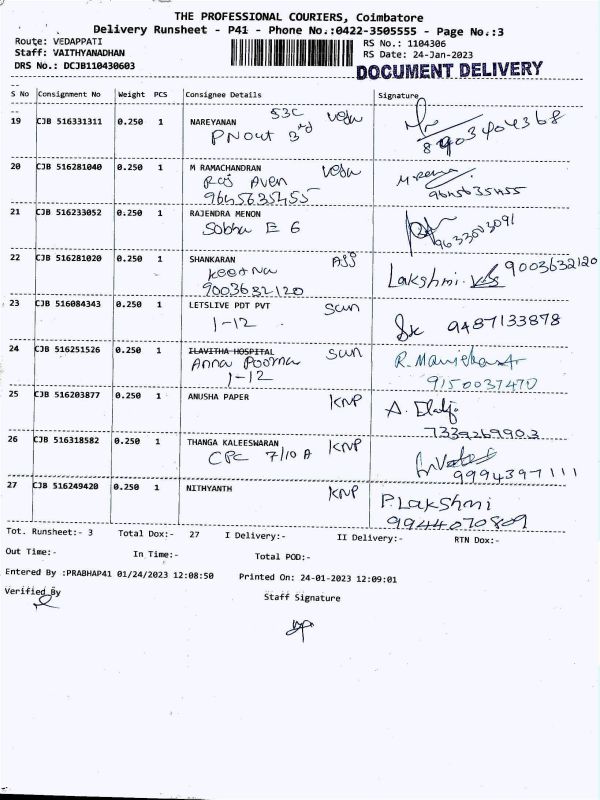 THE PROFESSIONAL COURIERS, Coimbatore
Delivery Runsheet - P41 - Phone No.:0422-3505555 - Page No.:3
Route: VEDAPPATI RS No.: 1104306
Staff: VAITHYANADHAN RS Date: 24-Jan-2023
DRS No.: DCJB110430603 DOCUMENT DELIVERY
S No Consignment No Weight PCS Consignee Details Signature
19 CJB 516331311 0.250 1 NAREYANAN 53C
PNout 3rd 8903404368
20 CJB 516281040 0.250 1 M RAMACHANDRAN
Raj Aven
9645635455 9645635455
21 CJB 516233052 0.250 1 RAJENDRA MENON
Sobha E 6 9633003091
22 CJB 516281020 0.250 1 SHANKARAN
9003632120 Lakshmi. 9003632120
23 CJB 516084343 0.250 1 LETSLIVE PDT PVT sun
1-12 9487133878
24 CJB 516251526 0.250 1 ILAVITHA HOSPITAL sun
Anna Poorna
1-12 9150037470
25 CJB 516203877 0.250 1 ANUSHA PAPER KNP
7339269903
26 CJB 516318582 0.250 1 THANGA KALEESWARAN KNP
CPC 7/10 A 9994397111
27 CJB 516249420 0.250 1 NITHYANTH KNP P. Lakshmi
9944070809
Tot. Runsheet:- 3 Total Dox:- 27 I Delivery:- II Delivery:- RTN Dox:-
Out Time:- In Time:- Total POD:-
Entered By :PRABHAP41 01/24/2023 12:08:50 Printed On: 24-01-2023 12:09:01
Verified By Staff Signature